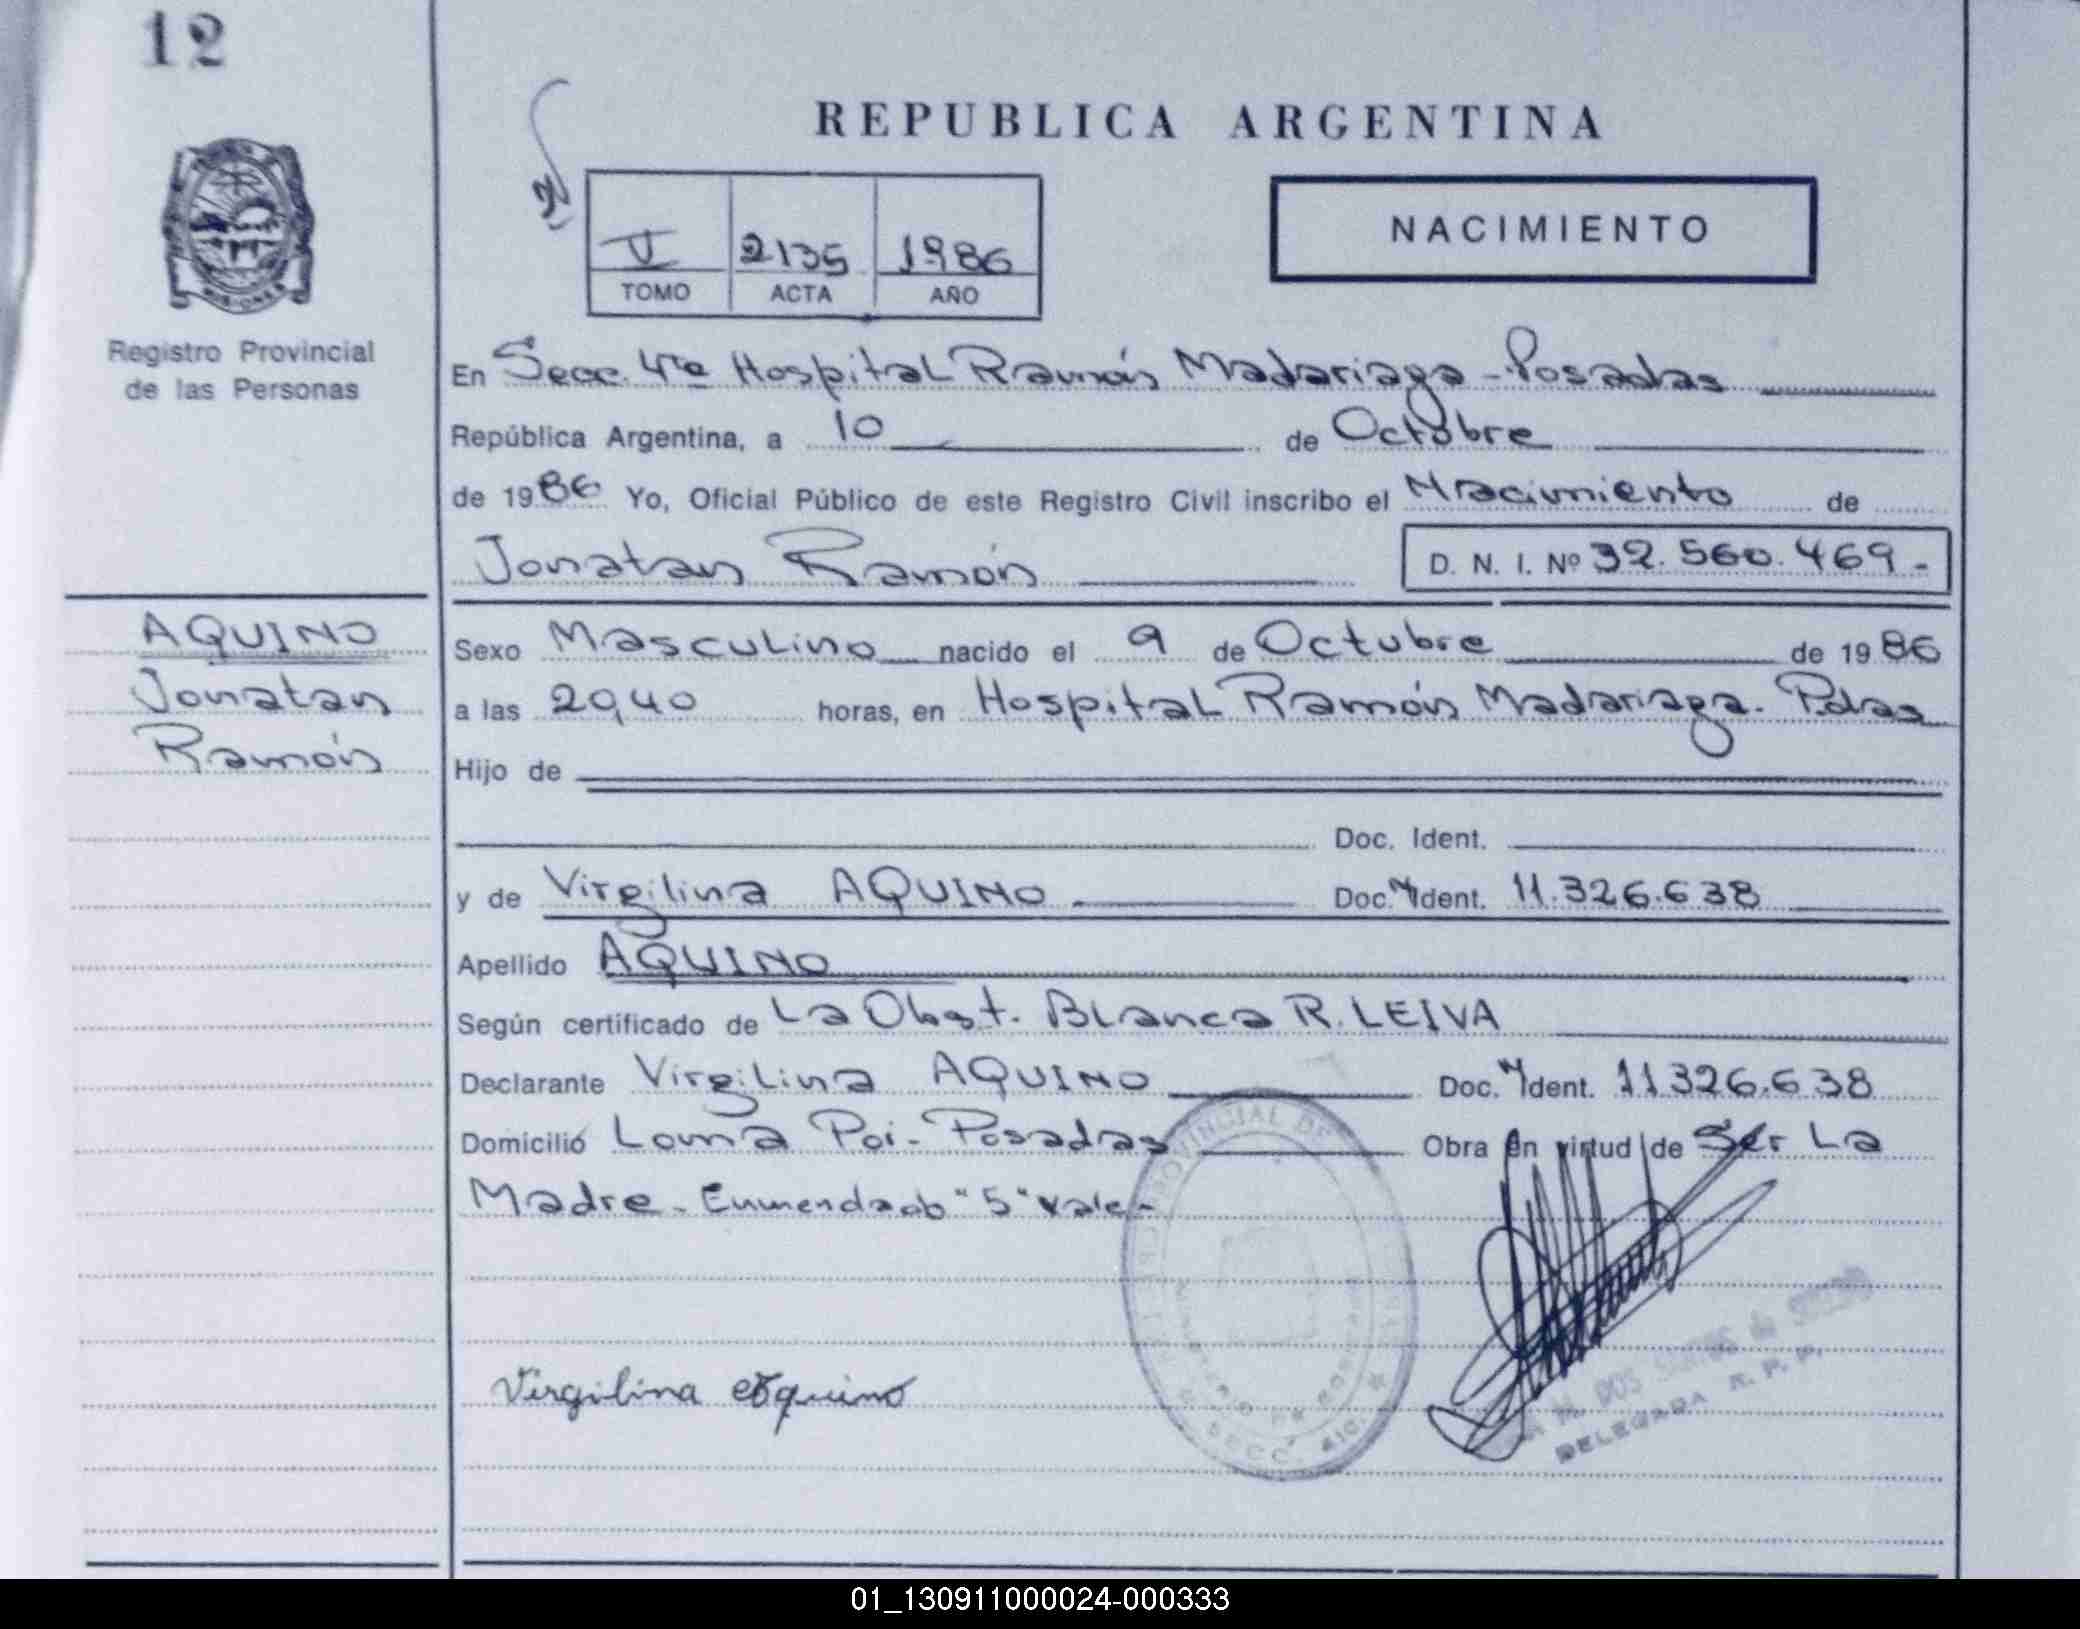 12
REPUBLICA ARGENTINA
NACIMIENTO
V 2135 1986
TOMO ACTA AÑO
MISIONES
Registro Provincial
de las Personas
En Secc. 4ta Hospital Ramón Madariaga - Posadas
República Argentina, a 10 de Octubre
de 1986 Yo, Oficial Público de este Registro Civil inscribo el Nacimiento de
Jonatan Ramón D. N. I. Nº 32.560.469-
AQUINO
Jonatan
Ramón
Sexo Masculino nacido el 9 de Octubre de 1986
a las 20,40 horas, en Hospital Ramón Madariaga. Pdas
Hijo de
Doc. Ident.
y de Virgilina AQUINO Doc. Ident. 11.326.638
Apellido AQUINO
Según certificado de La Obst. Blanca R. LEIVA
Declarante Virgilina AQUINO Doc. Ident. 11.326.638
Domicilio Loma Poi - Posadas Obra en virtud de Ser La
Madre - Enmendado "5" Vale-
Virgilina Aquino
PROVINCIAL DE
SECC. 4ta.
DOS SANTOS de
DELEGADA R. P. P.
01_130911000024-000333